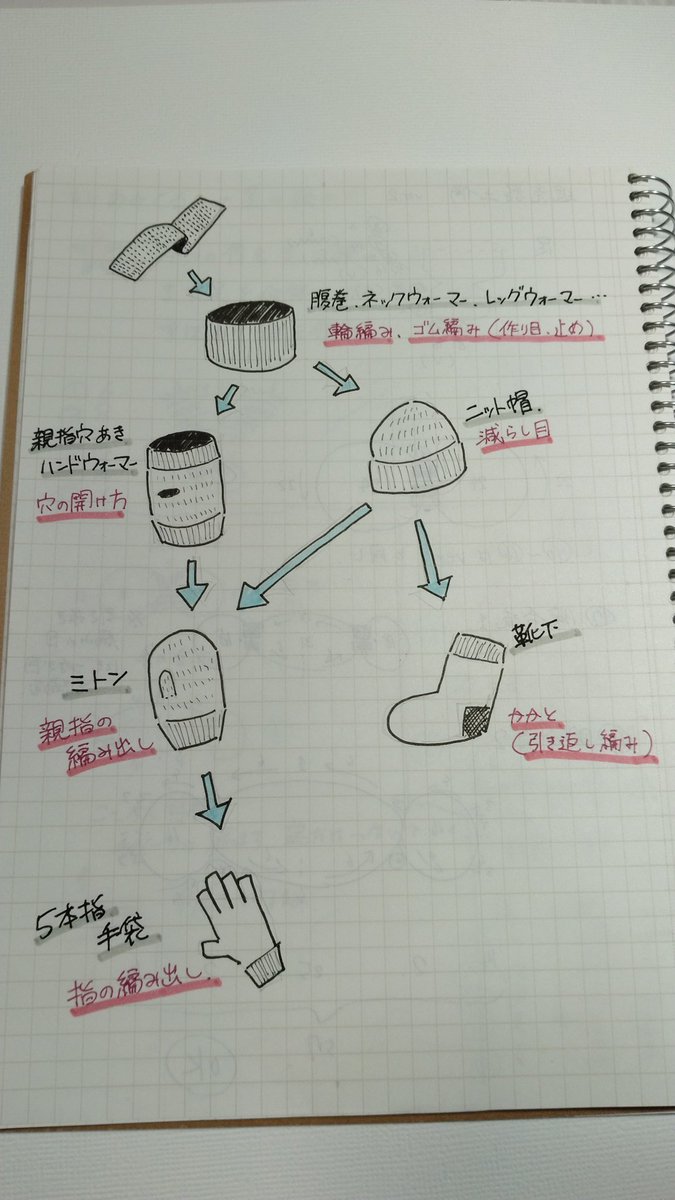 腹巻、ネックウォーマー、レッグウォーマー…
輪編み、ゴム編み(作り目、止め)
親指穴あき
ハンドウォーマー
穴の開け方
ニット帽、
減らし目
ミトン
親指の
編み出し
靴下
かかと
(引き返し編み)
5本指
手袋
指の編み出し、